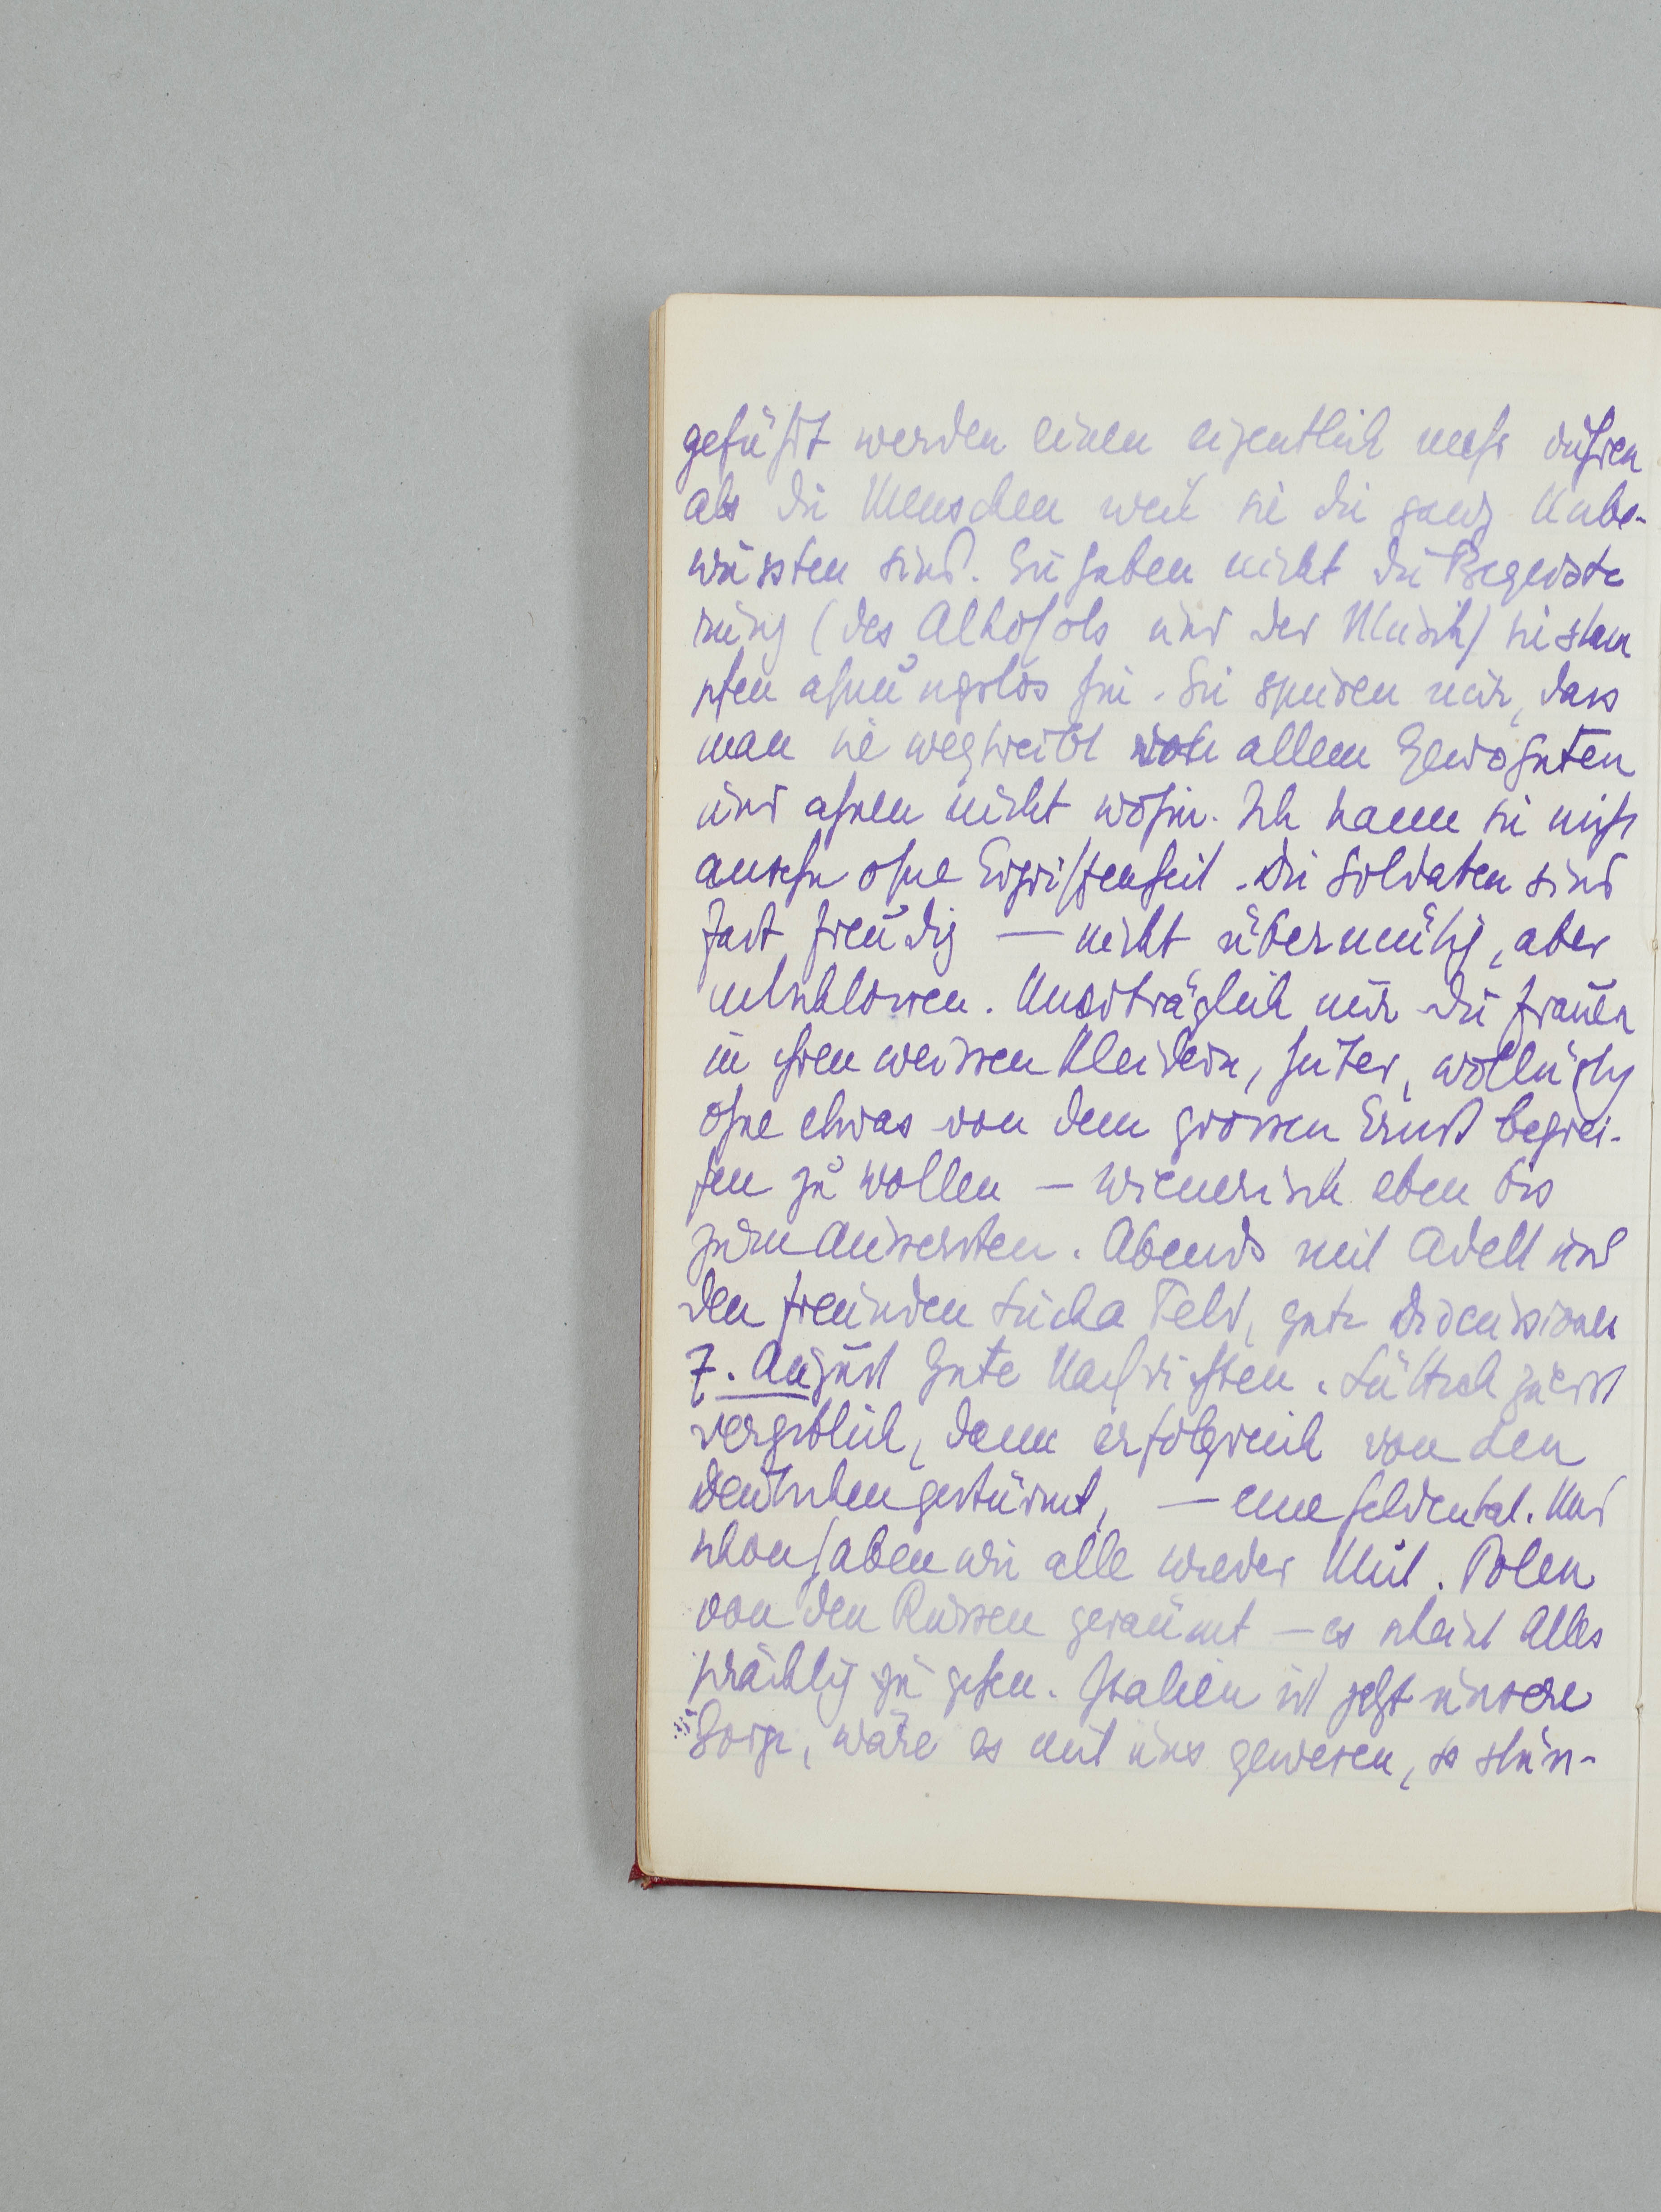 geführt werden einen eigentlich mehr rühren
als die Menschen weil sie die ganz Unbe-
wussten sind. Sie haben nicht die Begeiste
rung (des Alkohols und der Musik) sie stam
pfen ahnungslos hin. Sie spüren nur, dass
man sie wegtreibt von allem Gewohnten
und ahnen nicht wohin. Ich kann sie nicht
ansehn ohne Ergriffenheit. Die Soldaten sind
fast freudig — nicht übermütig, aber
entschlossen. Unerträglich nur die Frauen
in ihren weissen Kleidern, heiter, wollüstig
ohne etwas von dem grossen Ernst begrei-
fen zu wollen — wienerisch eben bis
zum Äussersten. Abends mit Adelt und
den Freunden Lucka Feld, gute Discussionen
7. August Gute Nachrichten. Lüttich zuerst
vergeblich, dann erfolgreich von den
Deutschen gestürmt, — eine Heldentat. Und
schon haben wir alle wieder Mut. Polen
von den Russen geräumt — es scheint Alles
prächtig zu gehen. Italien ist jetzt unsere
Sorge, wäre es mit uns gewesen, so stün-